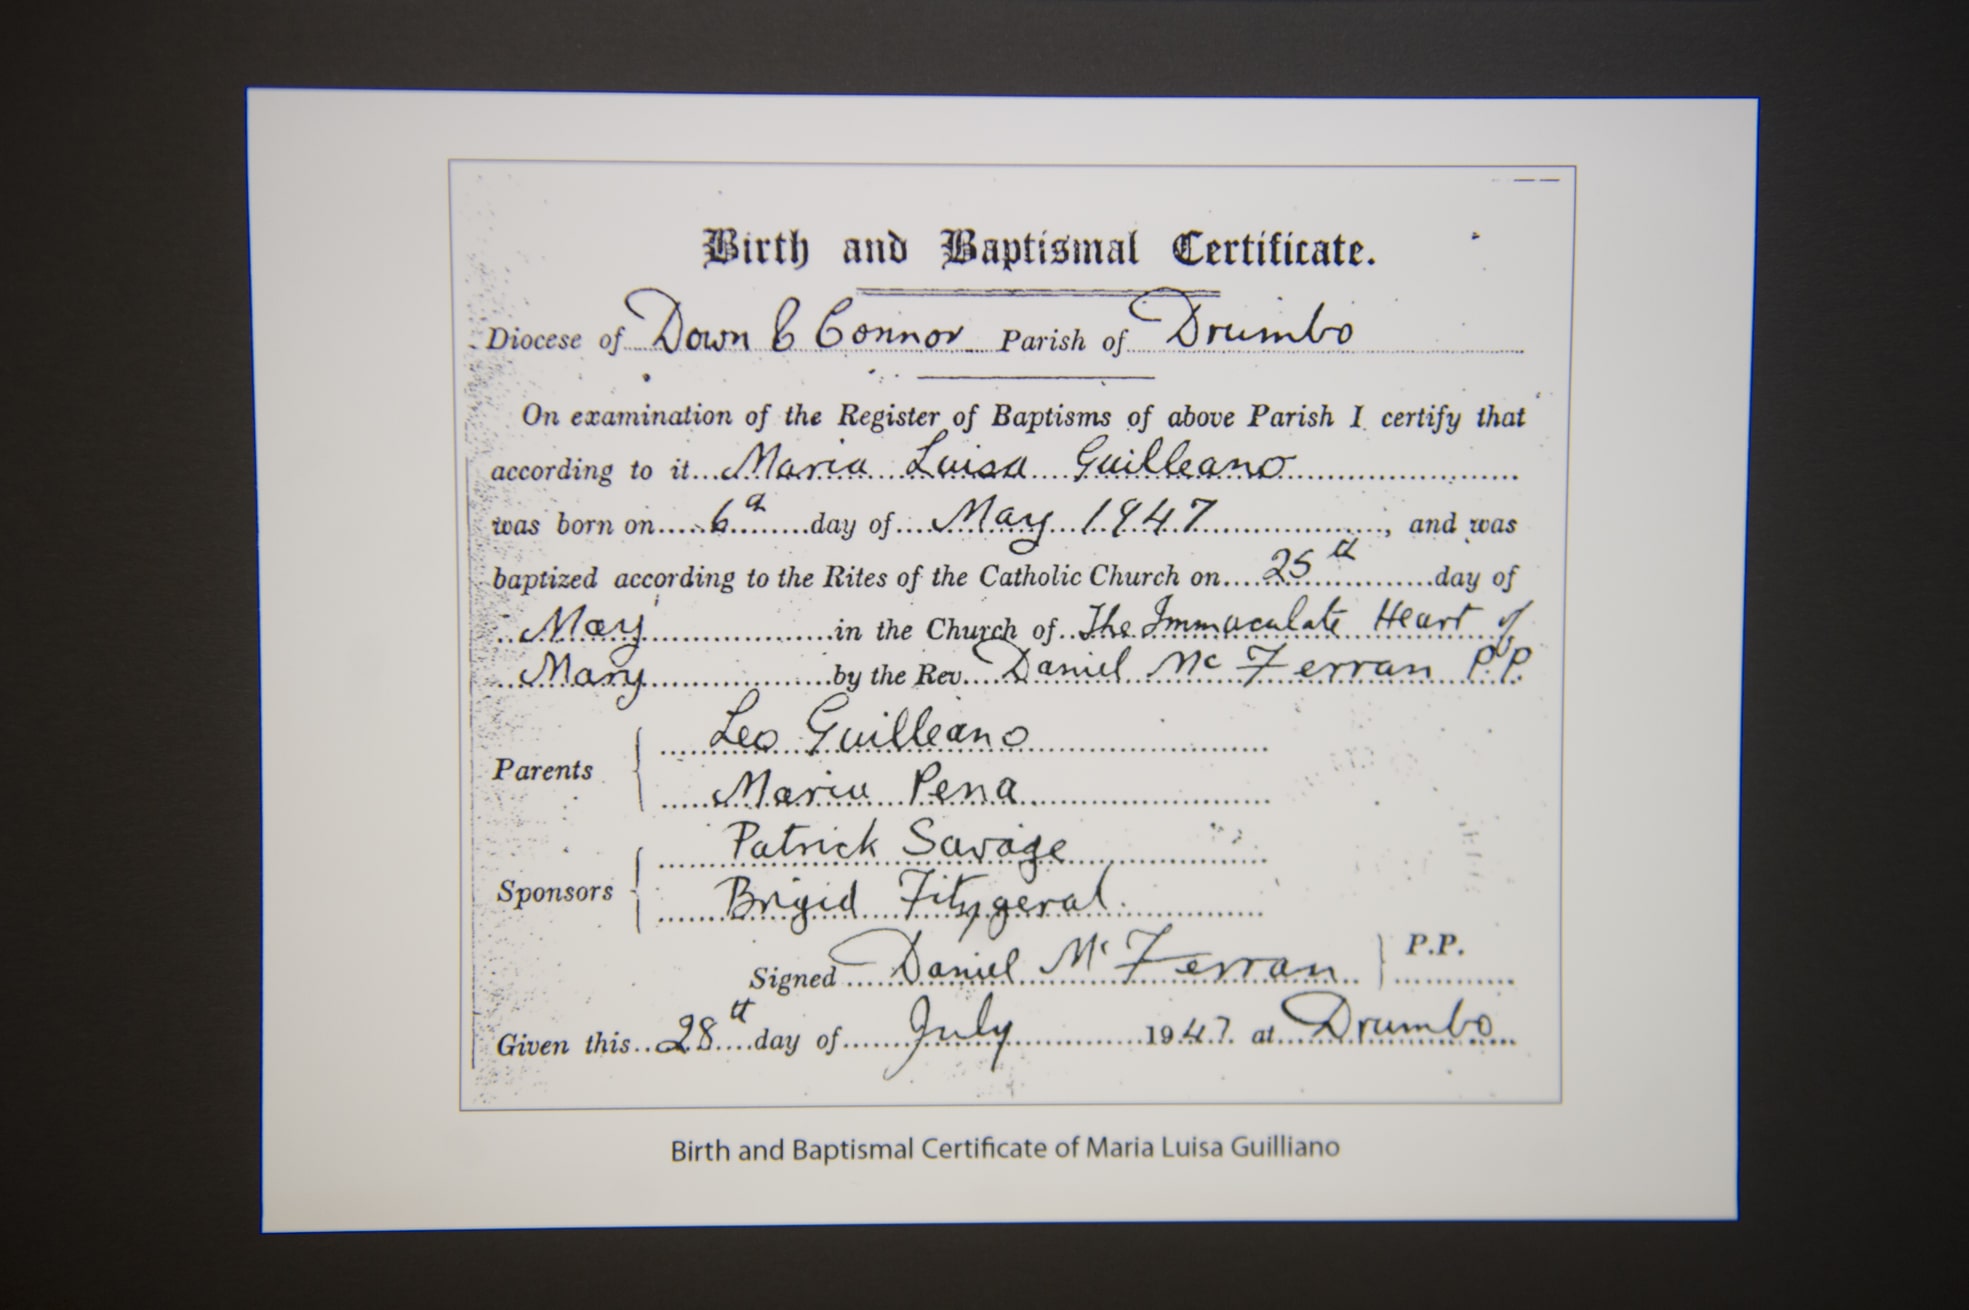 Birth and Baptismal Certificate.
Diocese of Down & Connor Parish of Drumbo
On examination of the Register of Baptisms of above Parish I certify that
according to it Maria Luisa Guilleano
was born on 6th day of May 1947, and was
baptized according to the Rites of the Catholic Church on 25th day of
May in the Church of The Immaculate Heart of
Mary by the Rev. Daniel McFerran P.P.
Leo Guilleano
Parents
Maria Pena
Patrick Savage
Sponsors
Brigid Fitzgeral.
Signed Daniel McFerran P.P.
Given this 28th day of July 1947. at Drumbo
Birth and Baptismal Certificate of Maria Luisa Guilliano